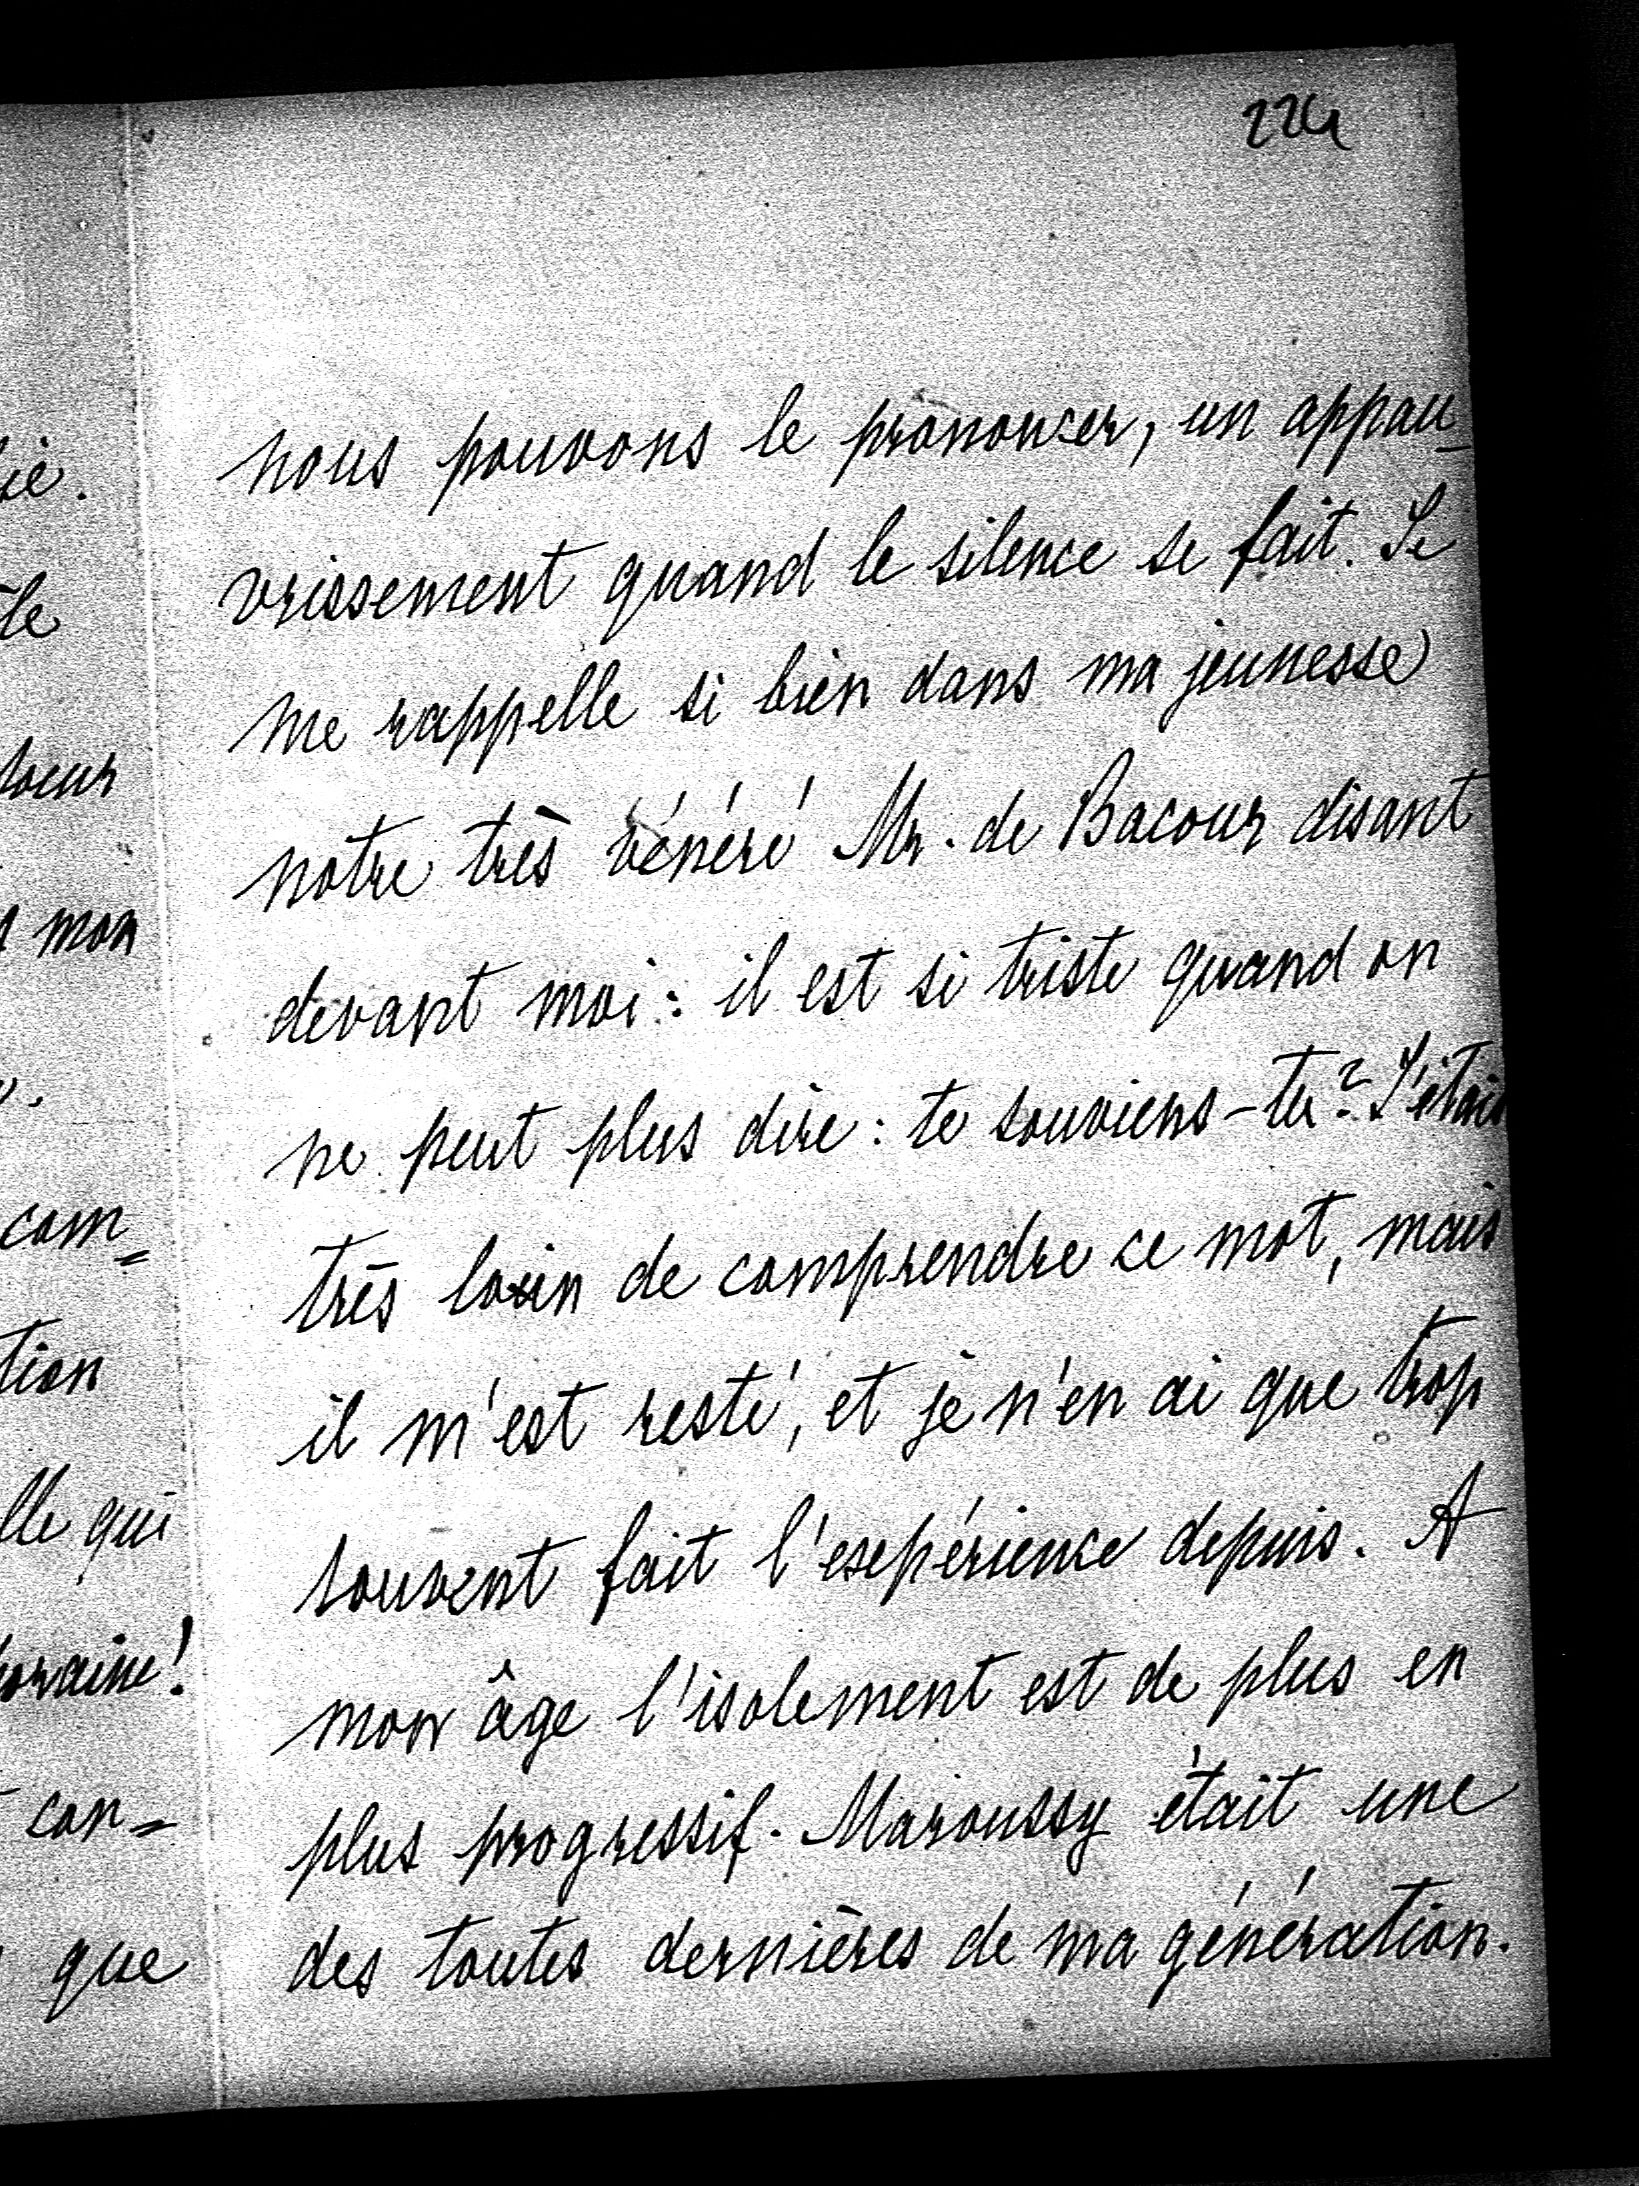 224
nous pouvons le prononcer, un appau-
vrissement quand le silence se fait. Je
me rappelle si bien dans ma jeunesse
notre très vénéré Mr. de Bacour disant
devant moi : il est si triste quand on
ne peut plus dire : te souviens-tu? J'étais
très loin de comprendre ce mot, mais
il m'est resté, et je n'en ai que trop
souvent fait l'expérience depuis. A
mon âge l'isolement est de plus en
plus progressif. Maroussy était une
des toutes dernières de ma génération.